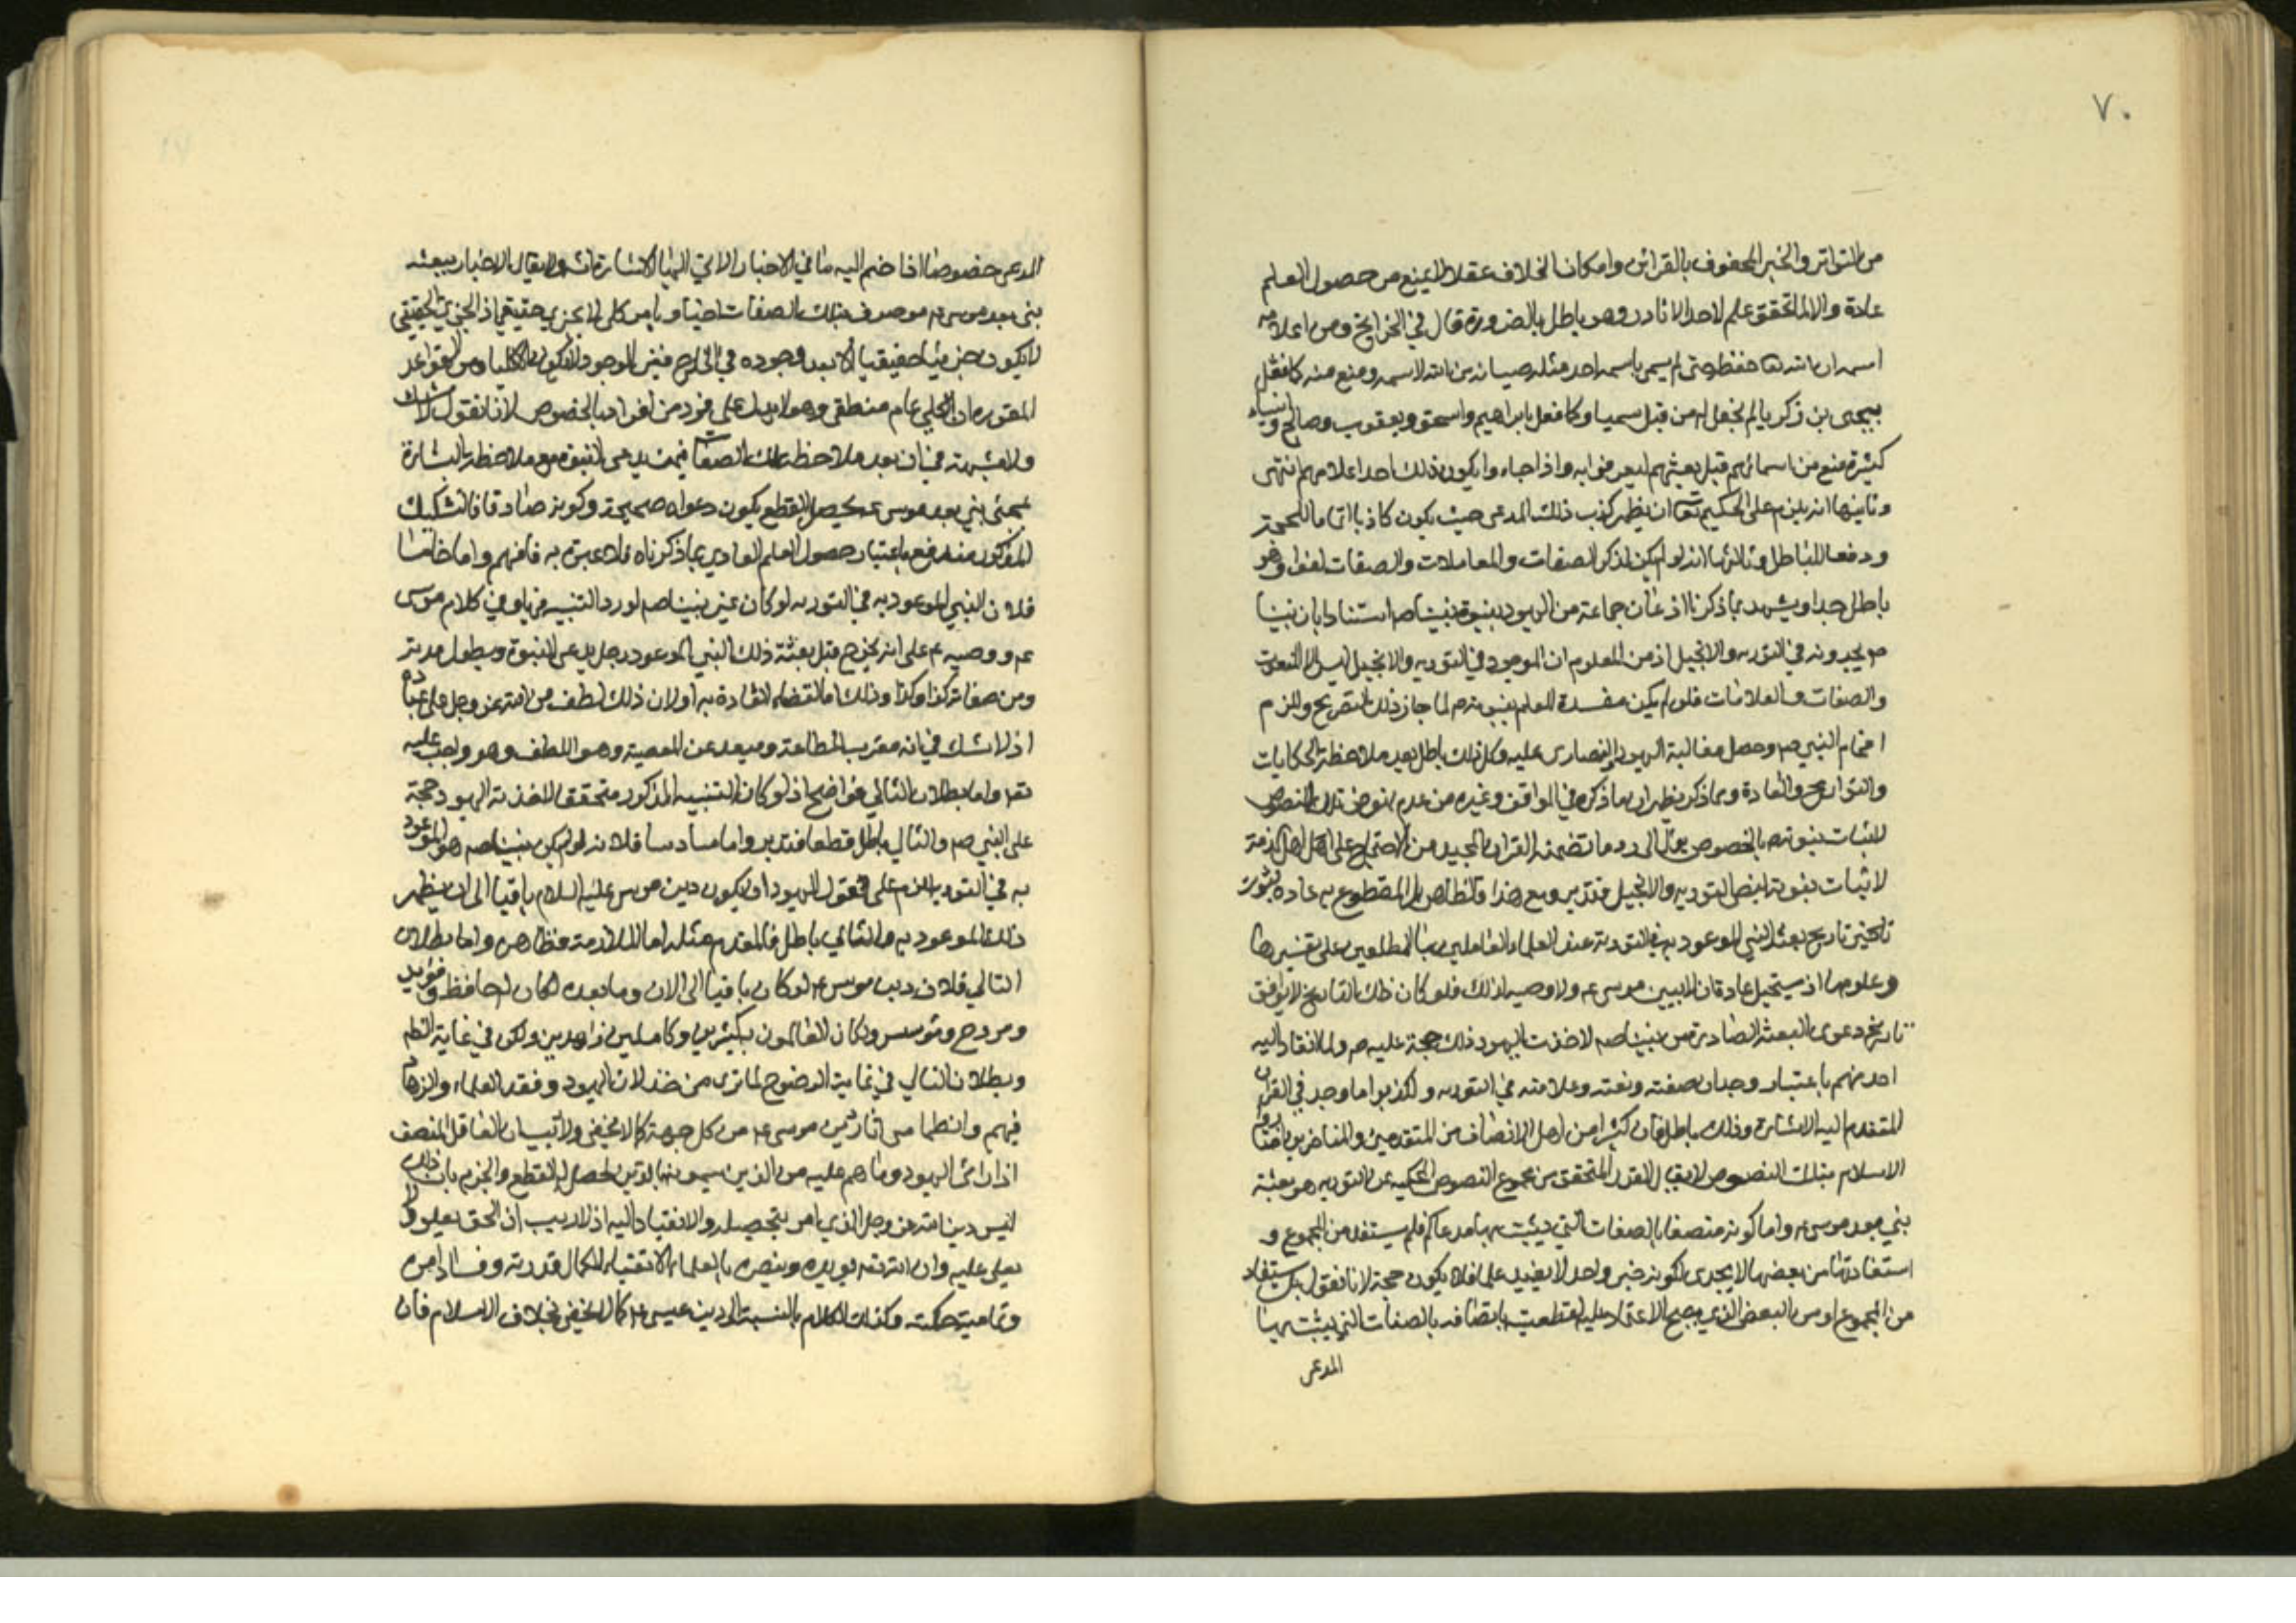 ٧٠
من التواتر والخبر المحفوف بالقرائن وامكان الخلاف عقلا لا يمنع من حصول العلم
عادة والا لما تحقق علم لاحد الا نادرا وهو باطل بالضرورة قال في الخرايج ومن اعلامه
اسمه ان الله تعا حفظه حتى لم يسمى باسمه احد مثله صيانة من الله لاسمه ومنع منه كما فعل
بيحيى بن زكريا لم نجعل له من قبل سميا وكما فعل بابراهيم واسحق ويعقوب وصالح وانبياء
كثيرة منع من اسمائهم قبل بعثهم ليعرفوا به واذا جاءوا يكون ذلك احد اعلامهم انتهى
وثانيها انه يلزم على الحكيم تعا ان يظهر كذب ذلك المدعى حيث يكون كاذبا اتماما للحجة
ودفعا للباطل وثالثها انه لو لم يكن لذكر الصفات والمعاملات والصفات لغوا وهو
باطل جدا ويشهد بما ذكرنا اذعان جماعة من اليهود بنبوة نبينا صم استنادا بان نبينا
صم يجدونه في التوريه والانجيل اذ من المعلوم ان الموجود في التوريه والانجيل ليس الا النعوت
والصفات والعلامات فلو لم يكن مفسدة للعلم بنبوته صم لما جاز ذلك التصريح ولزم
افحام النبي صم وحصل مغالبة اليهود والنصارى عليه وكل ذلك باطل بعد ملاحظة الحكايات
والتواريخ والعادة وبما ذكر يظهر ان ما ذكره في المواقف وغيره من عدم نهوض تلك النصوص
لاثبات نبوته صم بالخصوص الى رد ما تضمنه القران المجيد من الاحتجاج على اهل الذمة
لاثبات نبوته بنص التوريه والانجيل فتدبر ومع هذا فالظاهر بل المقطوع به عادة ثبوت
تاريخ بعثة النبي الموعود به في التورية عند العلماء العاملين بها المطلعين على تفسيرها
وعلومها اذ يستحيل عادة ان لا يبين موسى عم ولا وصيه لذلك فلو كان ذلك التاريخ لا يوافق
تاريخ دعوى البعثة الصادرة من نبينا صم لاخذت اليهود ذلك حجة عليه صم ولما انقاد اليه
احد منهم باعتبار وجدان صفته ونعته وعلامته في التوريه ولكذبوا ما وجد في القران
المتقدم اليه الاشارة وذلك باطل فان كثيرا من اهل الانصاف من المتقدمين والمتاخرين اختاروا
الاسلام بتلك النصوص لا يقال القدر المتحقق من مجموع النصوص المحكية عن التوريه هو بعثة
نبي بعد موسى عم واما كونه متصفا بالصفات التي يثبت بها مدعاكم فلم يستفد من المجموع و
استفادتها من بعضها لا يجدى لكونه خبر واحد لا يفيد علما فلا يكون حجة لانا نقول بل يستفاد
من المجموع او من البعض الذي يصح الاعتماد عليه لقطعيته اتصافه بالصفات التي يثبت بها
المدعى
المدعى خصوصا اذا ضم اليه ما في الاخبار الاتي اليها الاشارة انش ولا يقال الاخبار ببعثه
نبي بعد موسى عم موصوف بتلك الصفات اخبار بامر كلى لا بجزئي حقيقي اذ الجزئي الحقيقي
لا يكون جزئيا حقيقيا الا بعد وجوده في الخارج فغير الموجود لا يكون الا كليا ومن القواعد
المقررة ان الكلي عام منطقى وهو لا يدل على فرد من افراده بالخصوص لانا نقول لا شك
ولا شبهة في ان بعد ملاحظة تلك الصفات فيمن يدعى النبوة مع ملاحظة البشارة
بمجئ نبي بعد موسى عم يحصل القطع بكون دعواه صحيحة وكونه صادقا فالتشكيك
المذكور مندفع باعتبار حصول العلم العادي بما ذكرناه فلا عبرة به فافهم واما خامسا
فلان النبي الموعود به في التوريه لو كان غير نبينا صم لورد التنبيه في كلام موسى
عم ووصيه عم على انه يخرج قبل بعثة ذلك النبي الموعود رجل يدعى النبوة ويطول مدته
ومن صفاته كذا وكذا وذلك ما لقضاء العادة به او لان ذلك لطف من الله عز وجل على عباده
اذ لا شك في انه مقرب الى الطاعة ومبعد عن المعصية وهو اللطف وهو واجب عليه
تعا واما بطلان التالي فواضح اذ لو كان التنبيه المذكور متحققا لاخذته اليهود حجة
على النبي صم والتالي باطل قطعا فتدبر واما سادسا فلانه لو لم يكن نبينا صم هو الموعود
به في التوريه للزم على قول اليهود ان يكون دين موسى عليه السلام باقيا الى ان يظهر
ذلك الموعود به والتالي باطل فالمقدم مثله اما الملازمة فظاهرة واما بطلان
التالي فلان دين موسى عم لو كان باقيا الى الان وما بعده لكان له حافظ ومؤيد
ومروج ومؤسس ولكان العالمون به كثيرين وكاملين زاهدين ولكن في غاية النظم
وبطلان التالي في غاية الوضوح لما ترى من خذلان اليهود وفقد العلماء والزهاد
فيهم وانطماس اثار دين موسى عم من كل جهة كما لا يخفى ولا تبيان العاقل المنصف
اذا راى اليهود وما هم عليه من الذين يسمونها بالدين يحصل له القطع والجزم بان ذلك
ليس دين الله عز وجل الذي امر بتحصيله والانقياد اليه اذ لا ريب ان الحق يعلو ولا
يعلى عليه وان الله تعا يؤيده وينصره بالعلماء الاتقياء لكمال قدرته ونفاذ امره
وتمامية حكمته وكذلك الكلام بالنسبة الى دين عيسى عم كما لا يخفى بخلاف الاسلام فان